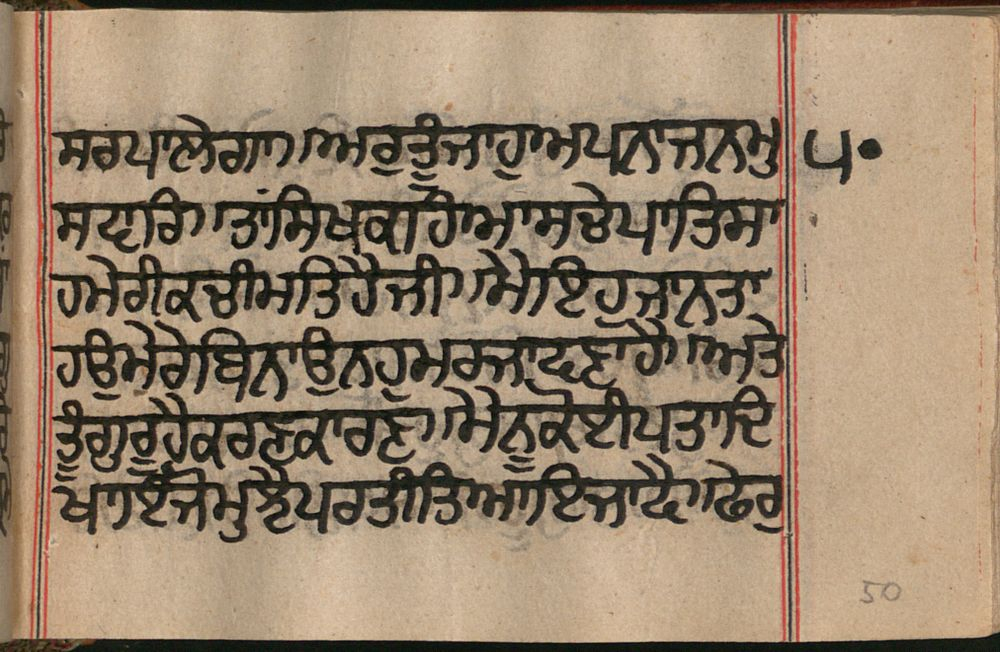 ਸਰਪਾਲੇਗਾ।ਅਰੁਤੂੰਜਾਹੁਅਪਨਾਜਨਮੁ ੫੦
ਸਵਾਰਿ।ਤਾਂਸਿਖਕਹਿਆਸਚੇਪਾਤਿਸਾ
ਹਮੇਰੀਕਚੀਮਤਿਹੈਜੀ।ਮੈਇਹੁਜਾਨਤਾ
ਹਉਮੇਰੇਬਿਨਾਉਨਹੁਮਰਜਾਵਣਾਹੈ।ਅਤੇ
ਤੂੰਗੁਰੂਹੈਕਰਣਕਾਰਣ।ਮੈਨੂਕੋਈਪਤਾਦਿ
ਖਾਈਜੋਮੁਝੈਪਰਤੀਤਿਆਇਜਾਵੈ।ਫੇਰੁ
50